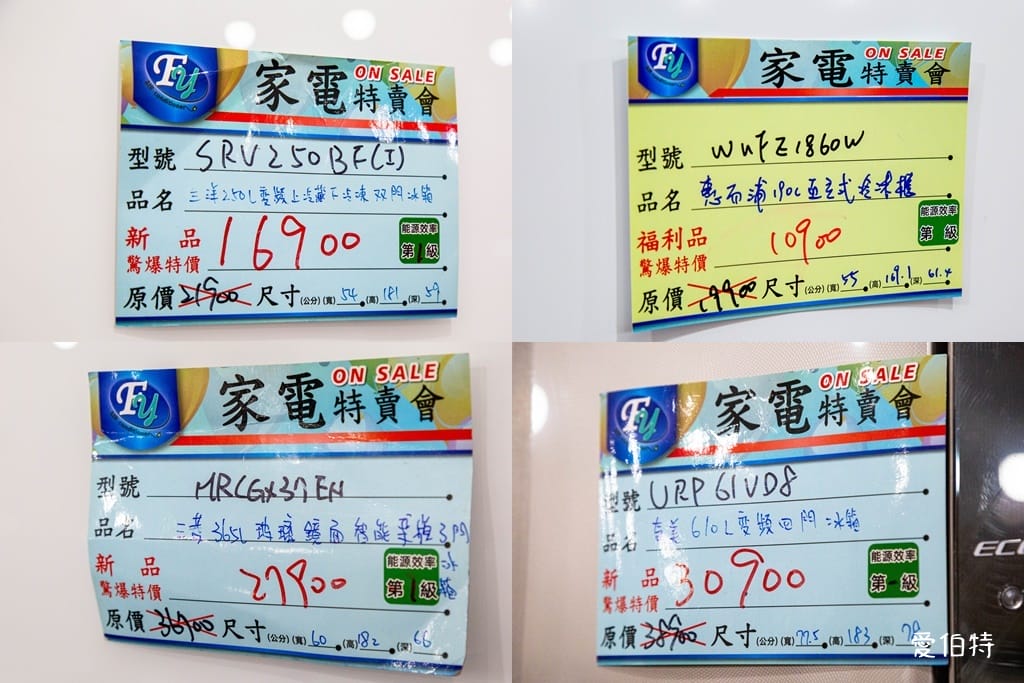 Fy
家電特賣會 ON SALE
型號 SRV250BF(I)
品名 三洋250L變頻上冷藏下冷凍雙門冰箱
新品
驚爆特價 16900
能源效率 第1級
原價 21900 尺寸(公分)(寬)54(高)181(深)59
Fy
家電特賣會 ON SALE
型號 WUFZ1860W
品名 惠而浦190L直立式冷凍櫃
福利品
驚爆特價 10900
能源效率 第 級
原價 19900 尺寸(公分)(寬)55(高)169.1(深)61.4
Fy
家電特賣會 ON SALE
型號 MRCGX37EN
品名 三菱365L玻璃鏡面智能業務3門冰箱
新品
驚爆特價 27900
能源效率 第1級
原價 36900 尺寸(公分)(寬)60(高)182(深)66
Fy
家電特賣會 ON SALE
型號 URP61VD8
品名 奇美610L變頻四門冰箱
新品
驚爆特價 30900
能源效率 第一級
原價 38900 尺寸(公分)(寬)77.5(高)183(深)
EC
愛伯特